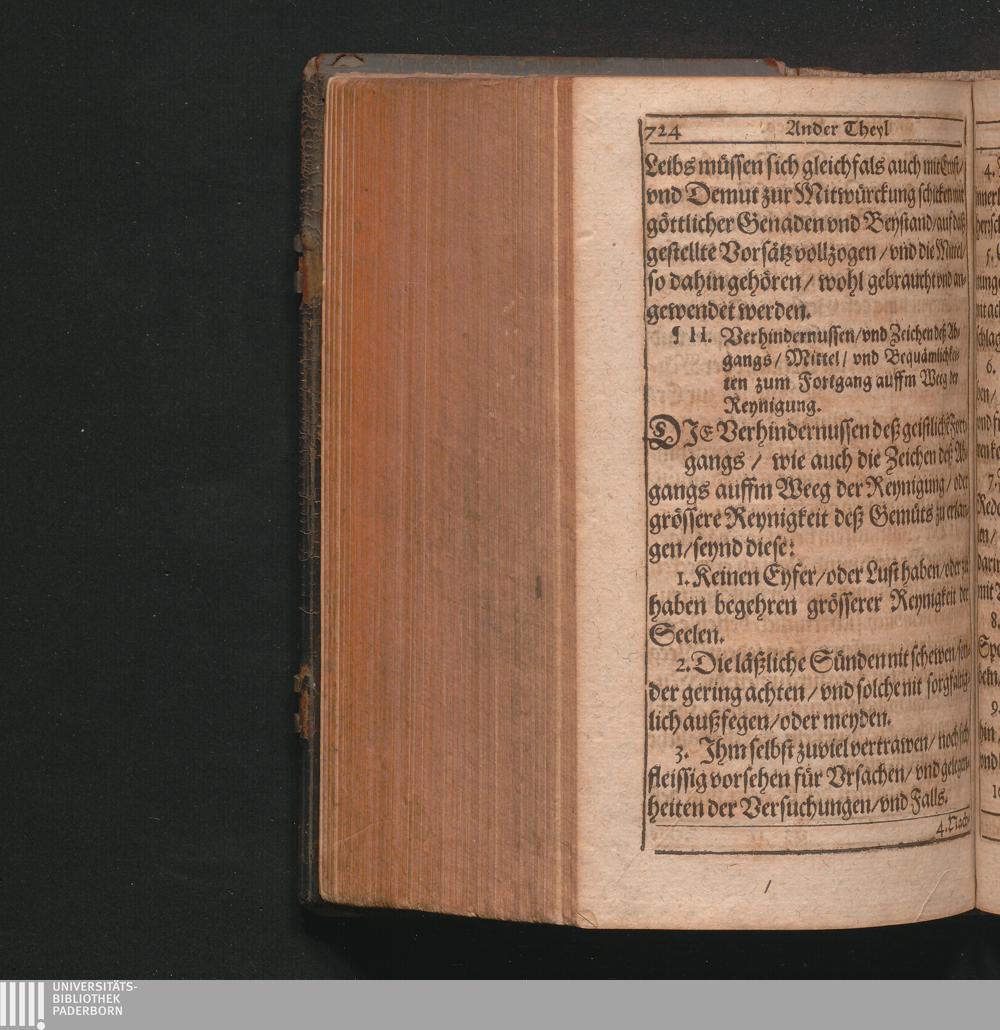 724 Ander Theyl
Leibs müssen sich gleichfals auch mit Ernst/
vnd Demut zur Mitwürckung schicken mit
göttlicher Genaden vnd Beystand/auf daß
gestellte Vorsätz vollzogen / vnd die Mittel/
so dahin gehören / wohl gebraucht vnd an-
gewendet werden.
¶ II. Verhindernussen/vnd Zeichen deß Ab-
gangs / Mittel / vnd Bequämlichkei-
ten zum Fortgang auffm Weeg der
Reynigung.
DJE Verhindernussen deß geistlichē Fort-
gangs / wie auch die Zeichen deß Ab-
gangs auffm Weeg der Reynigung / oder
grössere Reynigkeit deß Gemüts zu erlan-
gen/seynd diese:
1. Keinen Eyfer/oder Lust haben/oder zu
haben begehren grösserer Reynigkeit der
Seelen.
2. Die läßliche Sünden nit schewen/son-
der gering achten / vnd solche nit sorgfältig-
lich außfegen/oder meyden.
3. Jhm selbst zuviel vertrawen/ noch sich
fleissig vorsehen für Vrsachen/ vnd gelegen-
heiten der Versuchungen/vnd Falls.
4. Nach-
UNIVERSITÄTS-
BIBLIOTHEK
PADERBORN